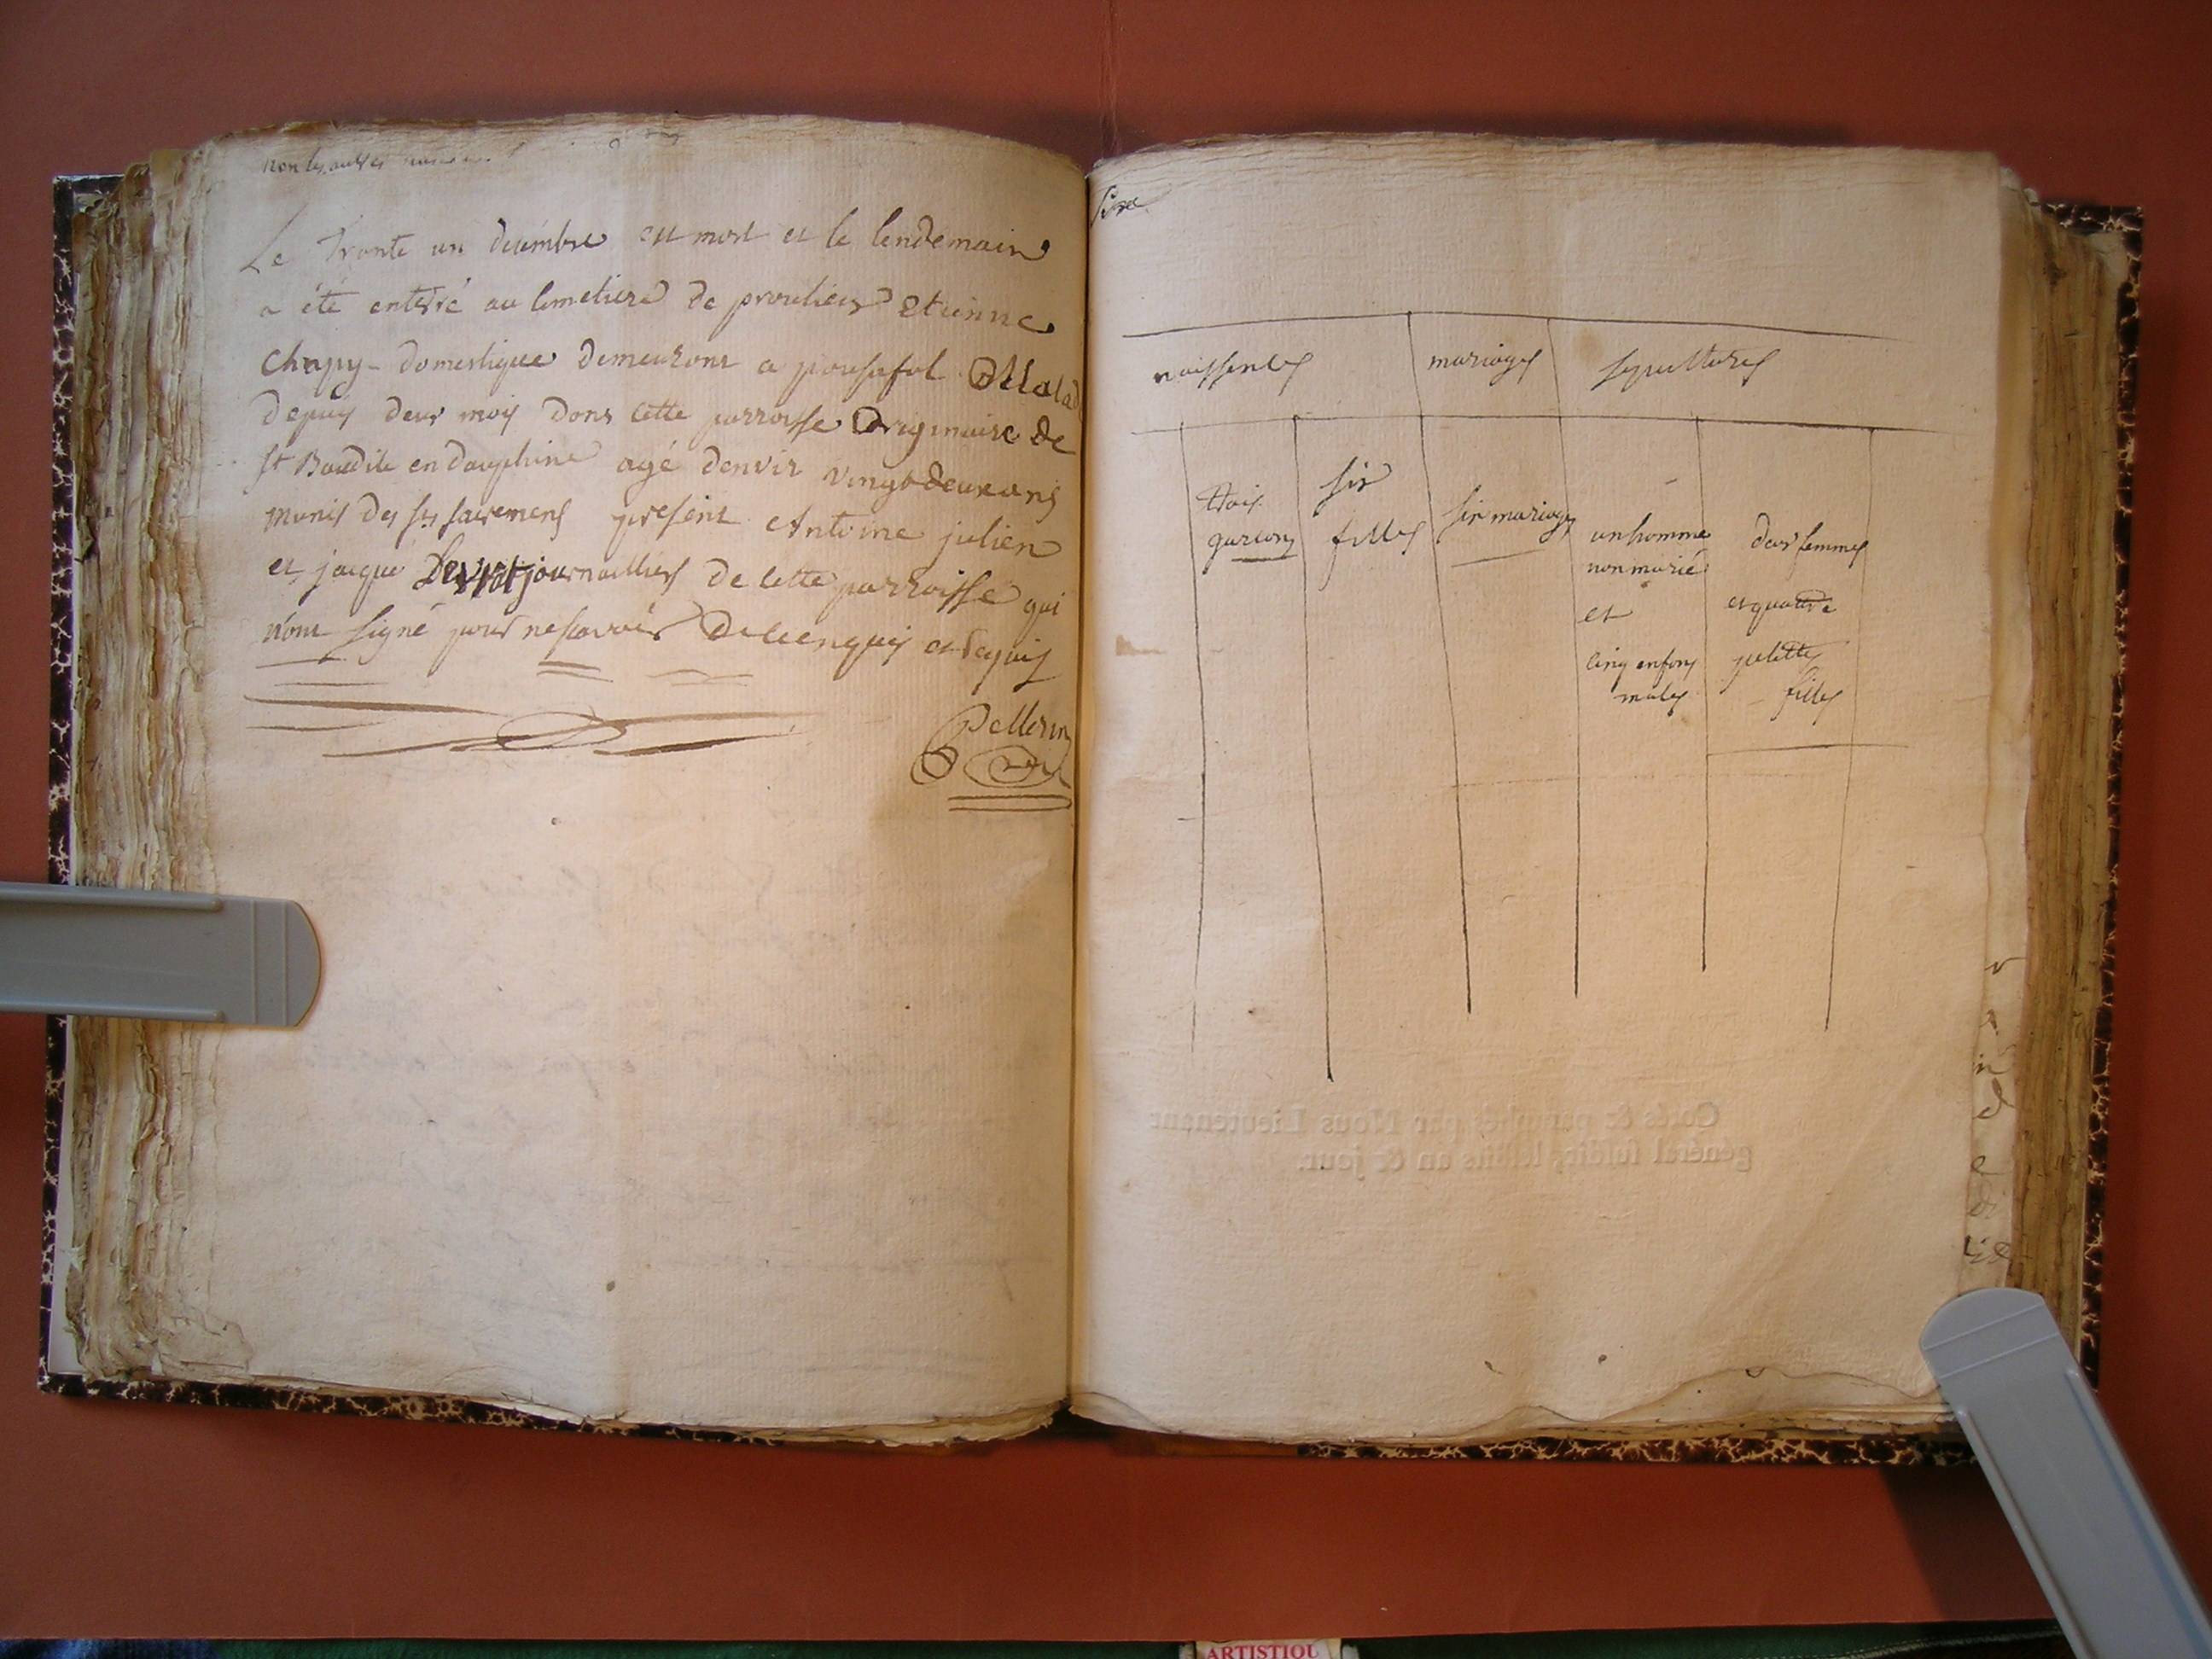 non les autres
Le Trente un decembre est mort et le lendemain
a été enterré au cimetiere de proulieu Etienne
Chapy domestique demeurant a pousafol Malad
depuis deux mois dans cette parroisse originaire de
St Baudile en dauphiné agé denvir vingt deux ans
munis des sts sacremens present Antoine julien
et jacque journailliers de cette parroisse qui
nont signé pour ne scavoir de ce enquis et requis
Pellerin
naissences
mariages
sepultures
trois
garcons
six
filles
six mariages
un homme
non marié
et
cinq enfans
males
deux femmes
et quattre
petittes
filles
Cotés & paraphés par Nous Lieutenant
général susdit, les an & jour.
ARTISTIQU